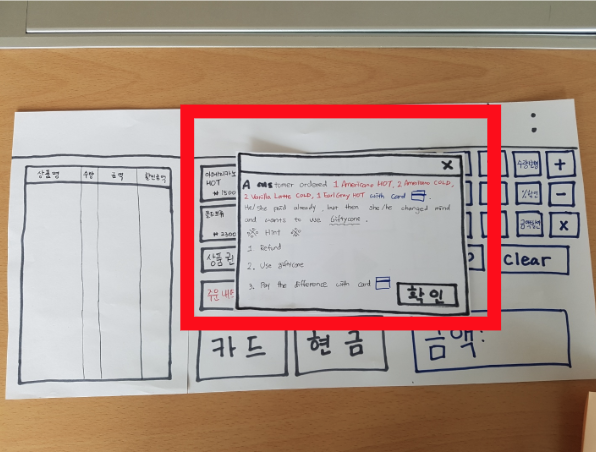 상품명 수량 금액 할인금액
HOT
₩ 1500
₩ 2300
상품권
A customer ordered 1 Americano HOT, 2 Americano COLD,
2 Vanilla Latte COLD, 1 Earl Grey HOT with card
He/she paid already, but then she/he changed mind
and wants to use Giftycone.
Hint
1. Refund
2. Use giftycone
3. Pay the difference with card
확인
X
+
-
X
clear
카드
현금
금액: